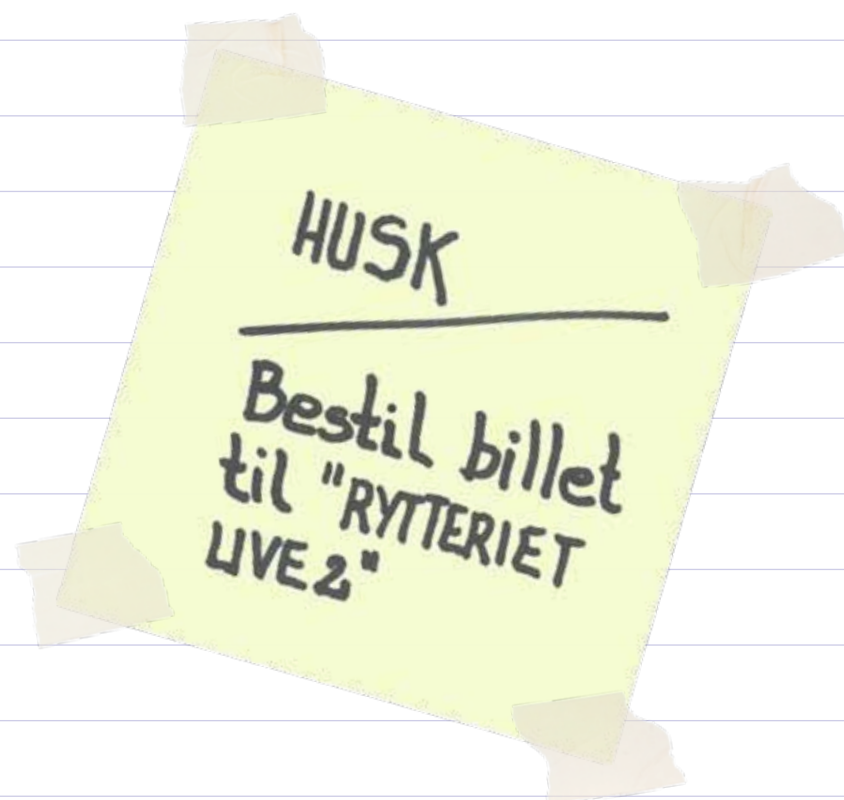 HUSK
Bestil billet
til "RYTTERIET
LIVE 2"